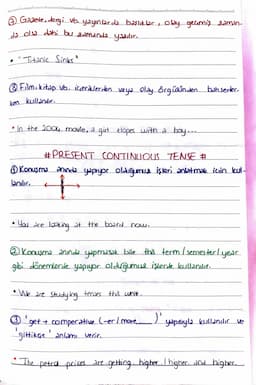 ③ Gazete, dergi vb. yayınlarda başlıklar, olay geçmiş zaman-
da olsa dahi bu zamanda yazılır.
• "Titanic Sinks"
④ Film, kitap vb. içeriklerden veya olay örgüsünden bahseder-
ken kullanılır.
• In the 2004 movie, a girl elopes with a boy...
# PRESENT CONTINUOUS TENSE #
① Konuşma anında yapıyor olduğumuz işleri anlatmak için kul-
lanılır.
• You are looking at the board now.
② Konuşma anında yapmasak bile this term / semester / year
gibi dönemlerde yapıyor olduğumuz işlerde kullanılır.
• We are studying tenses this week.
③ 'get + comperative (-er / more ___ )' yapısıyla kullanılır ve
"gittikçe" anlamı verir.
• The petrol prices are getting higher / higher and higher.